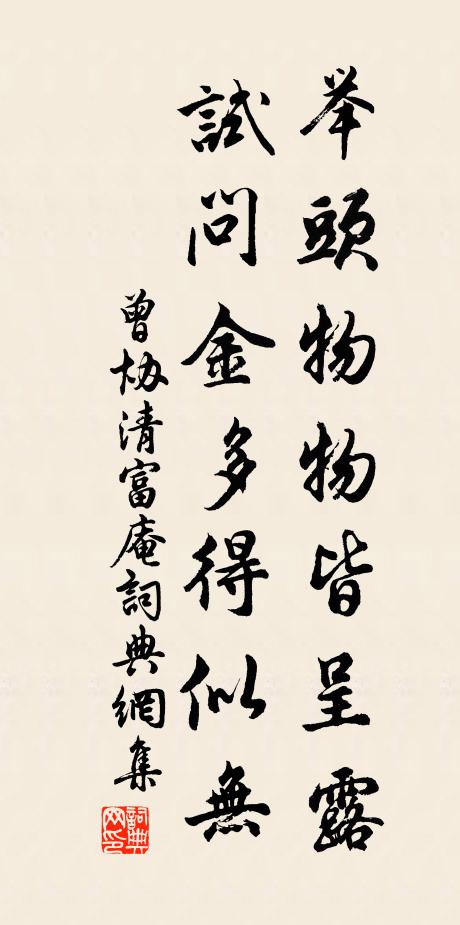 举頭物物皆呈露
試問金多得似無
曾協清富庵詞典網集
詞典網印